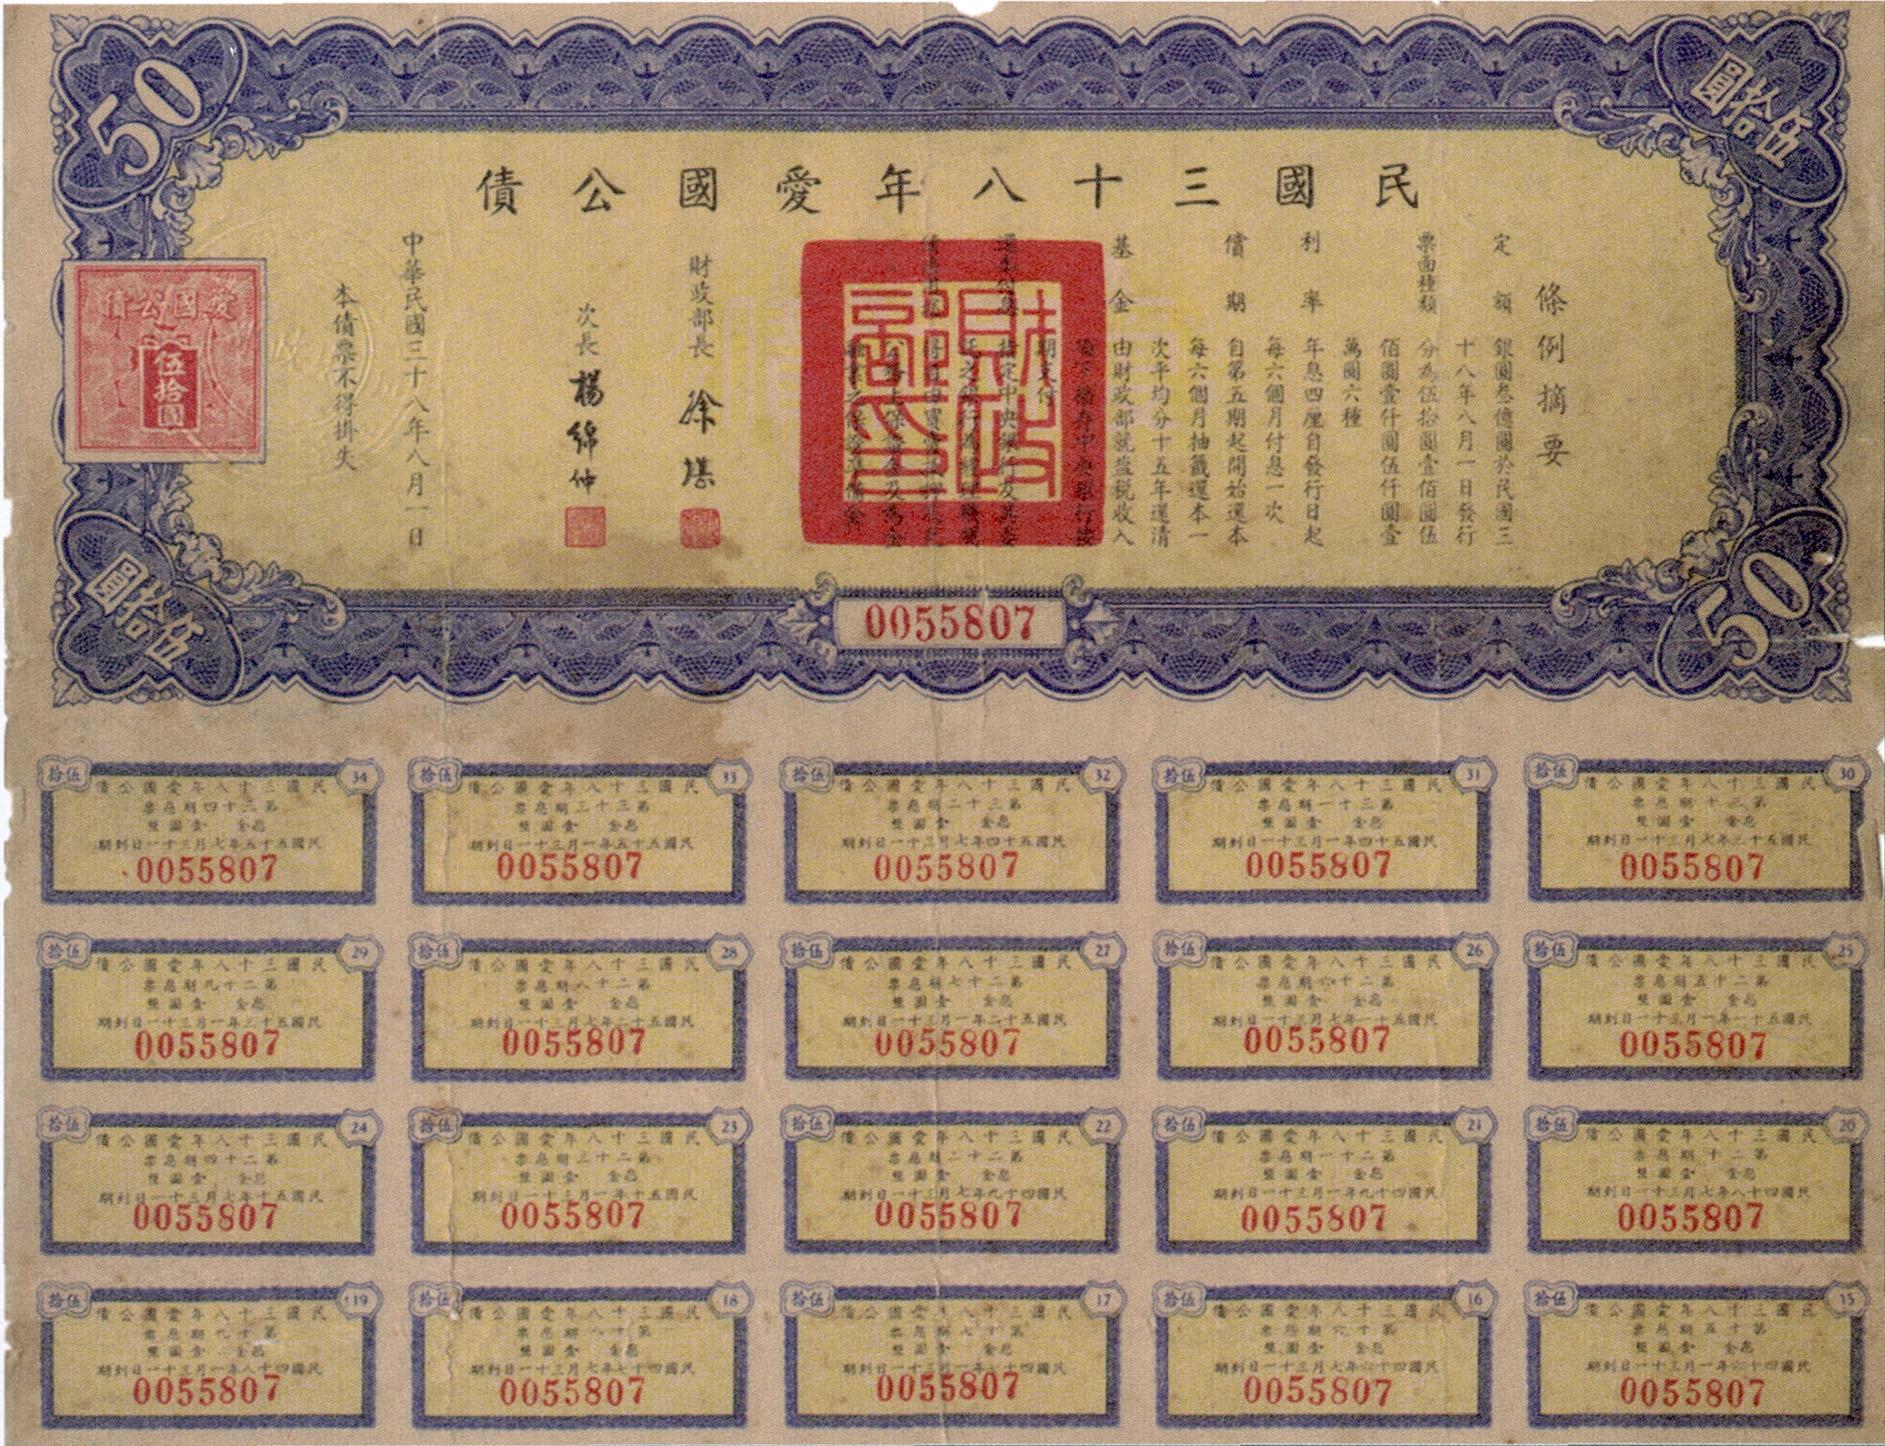 50
伍拾圓
民國三十八年愛國公債
條例摘要
定額 銀圓叁億圓於民國三
十八年八月一日發行
票面種類 分為伍拾圓壹佰圓伍
佰圓壹仟圓伍仟圓壹
萬圓六種
利率 年息四厘自發行日起
每六個月付息一次
償期 自第五期起開始還本
每六個月抽籤還本一
次平均分十五年還清
基金 由財政部就鹽稅收入
項下撥存中央銀行按
期支付
還本付息 指定中央銀行及其委
託之銀行為經理機關
得自由買賣抵押
公務上保證金及為金
融業之保證準備金
財政部印
財政部長 徐堪
次長 楊綿仲
中華民國三十八年八月一日
本債票不得掛失
愛國公債
伍拾圓
伍拾圓
50
0055807
伍拾
34
民國三十八年愛國公債
第三十四期息票
息金 壹圓整
民國五十五年七月三十一日到期
0055807
伍拾
33
民國三十八年愛國公債
第三十三期息票
息金 壹圓整
民國五十五年一月三十一日到期
0055807
伍拾
32
民國三十八年愛國公債
第三十二期息票
息金 壹圓整
民國五十四年七月三十一日到期
0055807
伍拾
31
民國三十八年愛國公債
第三十一期息票
息金 壹圓整
民國五十四年一月三十一日到期
0055807
伍拾
30
民國三十八年愛國公債
第三十期息票
息金 壹圓整
民國五十三年七月三十一日到期
0055807
伍拾
29
民國三十八年愛國公債
第二十九期息票
息金 壹圓整
民國五十三年一月三十一日到期
0055807
伍拾
28
民國三十八年愛國公債
第二十八期息票
息金 壹圓整
民國五十二年七月三十一日到期
0055807
伍拾
27
民國三十八年愛國公債
第二十七期息票
息金 壹圓整
民國五十二年一月三十一日到期
0055807
伍拾
26
民國三十八年愛國公債
第二十六期息票
息金 壹圓整
民國五十一年七月三十一日到期
0055807
伍拾
25
民國三十八年愛國公債
第二十五期息票
息金 壹圓整
民國五十一年一月三十一日到期
0055807
伍拾
24
民國三十八年愛國公債
第二十四期息票
息金 壹圓整
民國五十年七月三十一日到期
0055807
伍拾
23
民國三十八年愛國公債
第二十三期息票
息金 壹圓整
民國五十年一月三十一日到期
0055807
伍拾
22
民國三十八年愛國公債
第二十二期息票
息金 壹圓整
民國四十九年七月三十一日到期
0055807
伍拾
21
民國三十八年愛國公債
第二十一期息票
息金 壹圓整
民國四十九年一月三十一日到期
0055807
伍拾
20
民國三十八年愛國公債
第二十期息票
息金 壹圓整
民國四十八年七月三十一日到期
0055807
伍拾
19
民國三十八年愛國公債
第十九期息票
息金 壹圓整
民國四十八年一月三十一日到期
0055807
伍拾
18
民國三十八年愛國公債
第十八期息票
息金 壹圓整
民國四十七年七月三十一日到期
0055807
伍拾
17
民國三十八年愛國公債
第十七期息票
息金 壹圓整
民國四十七年一月三十一日到期
0055807
伍拾
16
民國三十八年愛國公債
第十六期息票
息金 壹圓整
民國四十六年七月三十一日到期
0055807
伍拾
15
民國三十八年愛國公債
第十五期息票
息金 壹圓整
民國四十六年一月三十一日到期
0055807